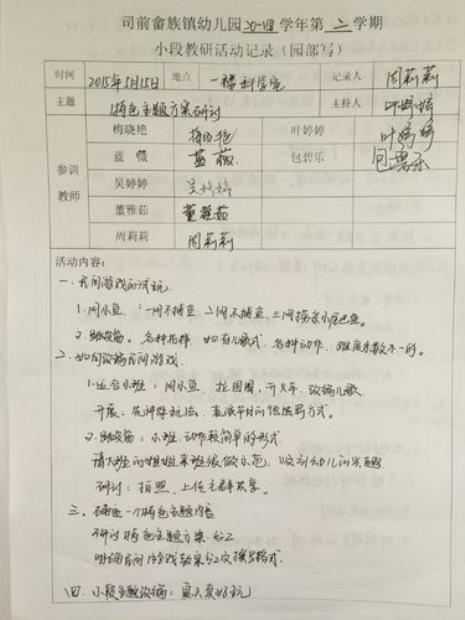 司前畲族镇幼儿园 学年第二学期
小段教研活动记录（园部写）
时间 2015年5月15日 地点 一楼科学室 记录人 周莉莉
主题 特色主题方案研讨 主持人 叶婷婷
梅晓艳 梅晓艳 叶婷婷 叶婷婷
蓝薇 蓝薇 包碧乐 包碧乐
参训教师 吴婷婷 吴婷婷
董雅茹 董雅茹
周莉莉 周莉莉
活动内容：
一、民间游戏的试玩
1.网小鱼：一网不捕鱼，二网不捕鱼，三网捞条小尾巴鱼。
2.跳皮筋。各种花样，如有儿歌式、各种动作、难度系数不一的。
二、如何改编民间游戏
1.适合小班：网小鱼、拉圆圈、开火车、改编儿歌
开展：先讲解玩法，
2.跳皮筋：小班动作较简单的形式
请大班的姐姐来班级做示范，
研讨：拍照、上传主群共享。
三、确定一个特色主题内容
研讨特色主题方案分工
明确民间游戏
四、小段主题改编：夏天真好玩